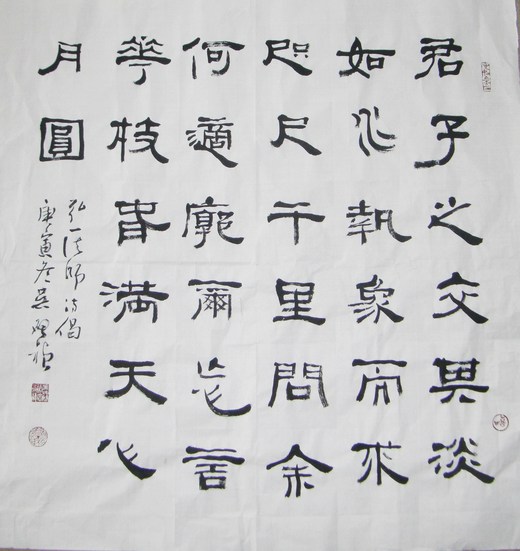 君子之交其淡
如水執象而求
咫尺千里問余
何適廓爾忘言
華枝春滿天心
月圓
弘一法師诗偈
庚寅冬吴